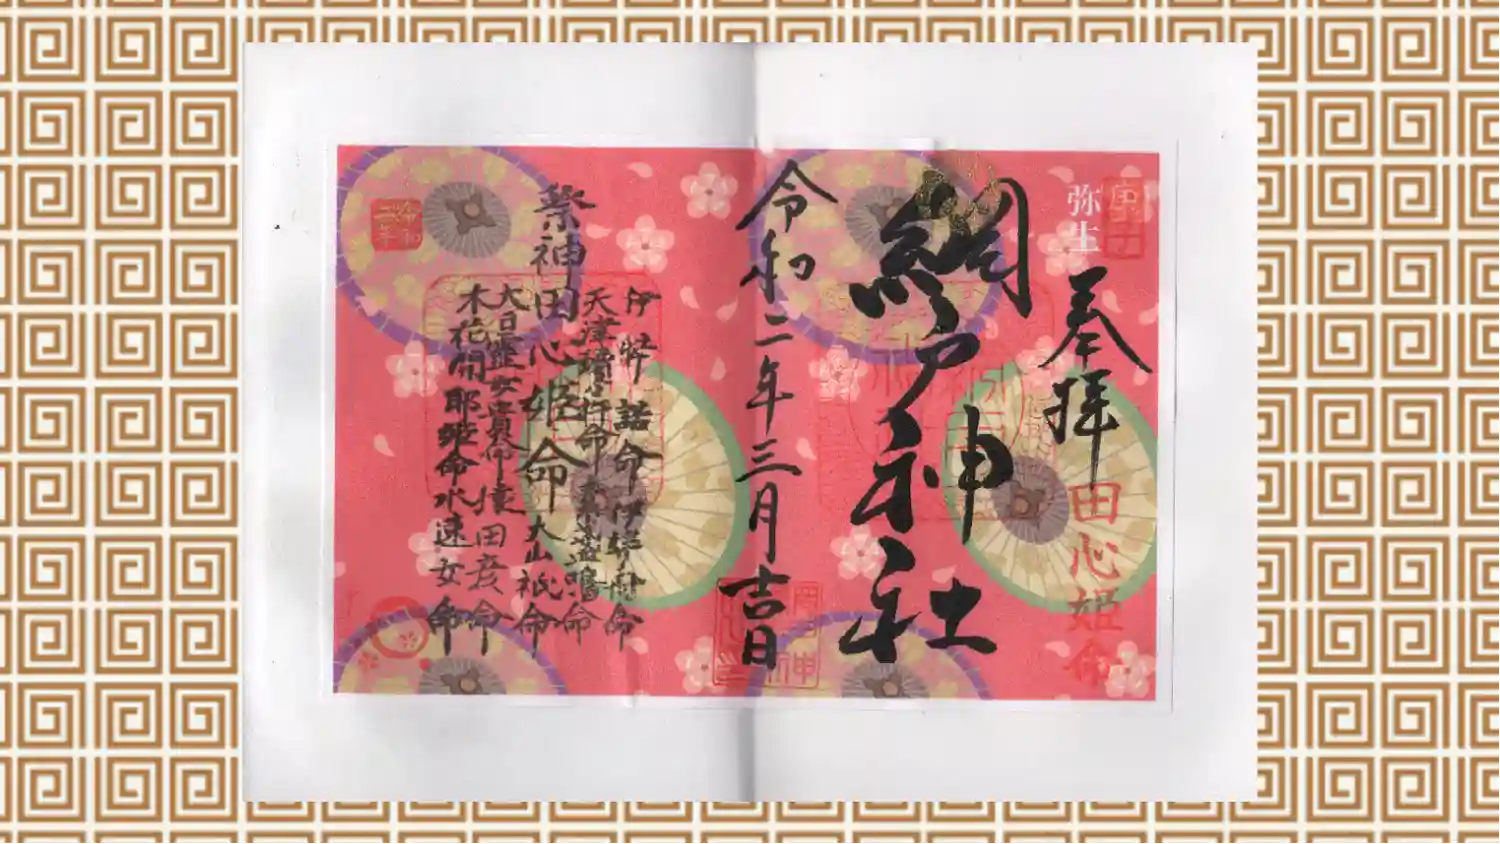 弥生
奉拝
田心姫命
網戸神社
令和二年三月吉日
祭神
伊弉諾命 伊弉冊命
天津 命 素盞嗚命
田心姫命 大山祇命
大日孁女貴命 猿田彦命
木花開耶姫命 水速女命
令和
二年